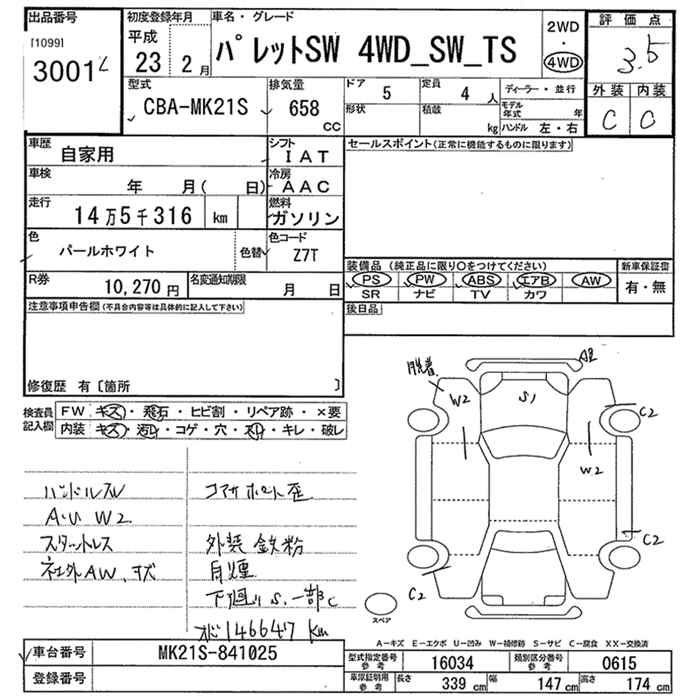 出品番号
[1099]
3001
初度登録年月
平成
23 2月
車名・グレード
パレットSW 4WD_SW_TS
2WD
・
4WD
評価点
3.5
外装 内装
C C
型式
CBA-MK21S
排気量
658
CC
ドア
5
定員
4 人
形状
積載
kg
ディーラー・並行
モデル年式 年
ハンドル 左・右
車歴
自家用
シフト
IAT
車検
年 月( 日)
冷房
AAC
走行
14万5千316 km
燃料
ガソリン
色
パールホワイト
色替
色コード
Z7T
R券
10,270 円
名変通知期限
月 日
セールスポイント(正常に機能するものに限ります)
装備品 (純正品に限り○をつけてください)
PS PW ABS エアB AW
SR ナビ TV カワ
新車保証書
有・無
後日品
注意事項申告欄(不具合内容等は具体的に記入して下さい)
修復歴 有〔箇所 〕
検査員記入欄
FW キズ・飛石・ヒビ割・リペア跡・×要
内装 キズ・汚レ・コゲ・穴・スレ・キレ・破レ
ハンドルスレ
A・U W2
スタットレス
社外AW、キズ
コアサポート歪
外装 鉄粉
下廻り S、一部C
146647 km
脱着
A2
W2
S1
C2
W2
C2
C2
スペア
A-キズ E-エクボ U-凹み W-補修跡 S-サビ C-腐食 XX-交換済
車台番号
MK21S-841025
登録番号
型式指定番号 参考
16034
類別区分番号 参考
0615
車庫証明用 参考
長さ 339 cm
幅 147 cm
高さ 174 cm